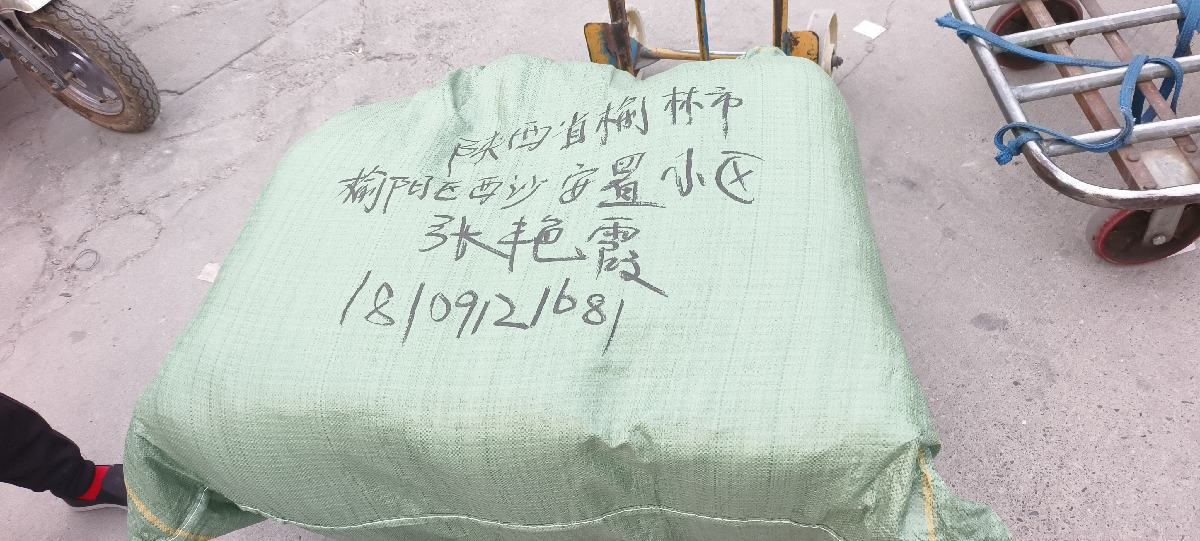 陕西省榆林市
榆阳区西沙安置小区
张艳霞
18109121681